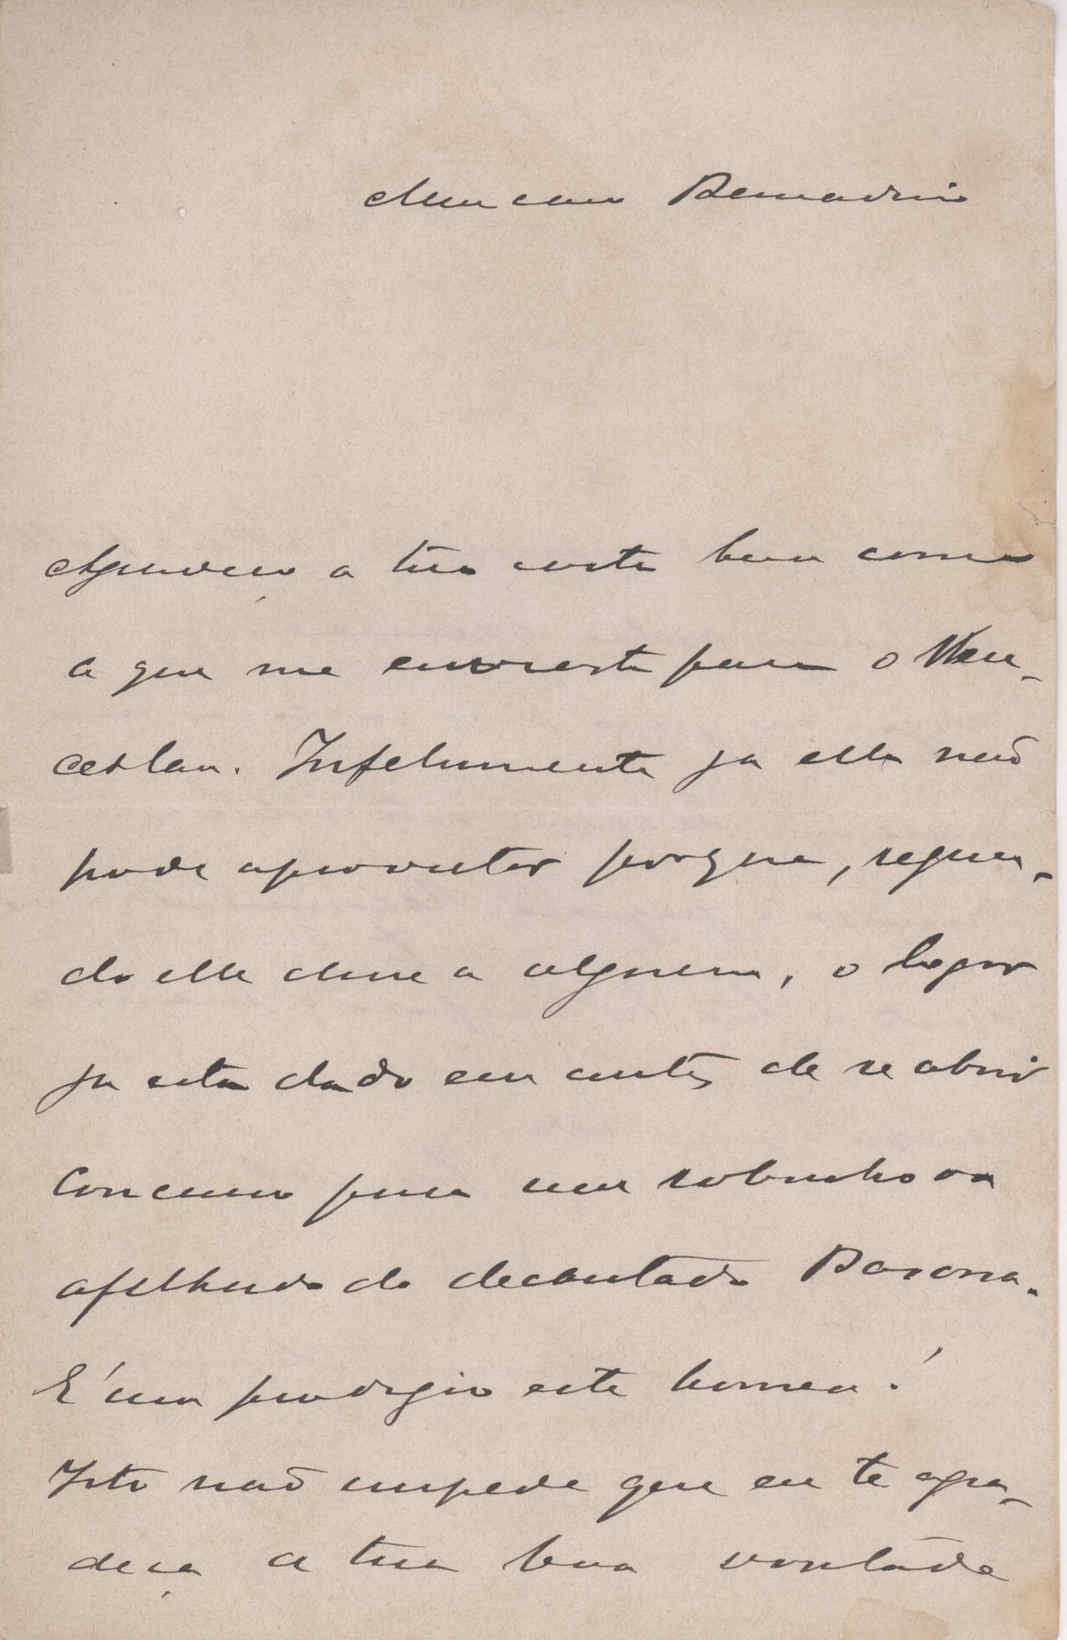 Meu caro Bernardino
Agradeço a tua carta bem como
a que me enviaste para o Wen-
ceslau. Infelizmente ja elle não
pode aproveitar porque, segun-
do elle disse a alguem, o logar
ja está dado em antes de se abrir
concurso para um sobrinho ou
afilhado do decantado Barona.
E' um prodigio este homem!
Isto não impede que eu te agra-
deça a tua boa vontade